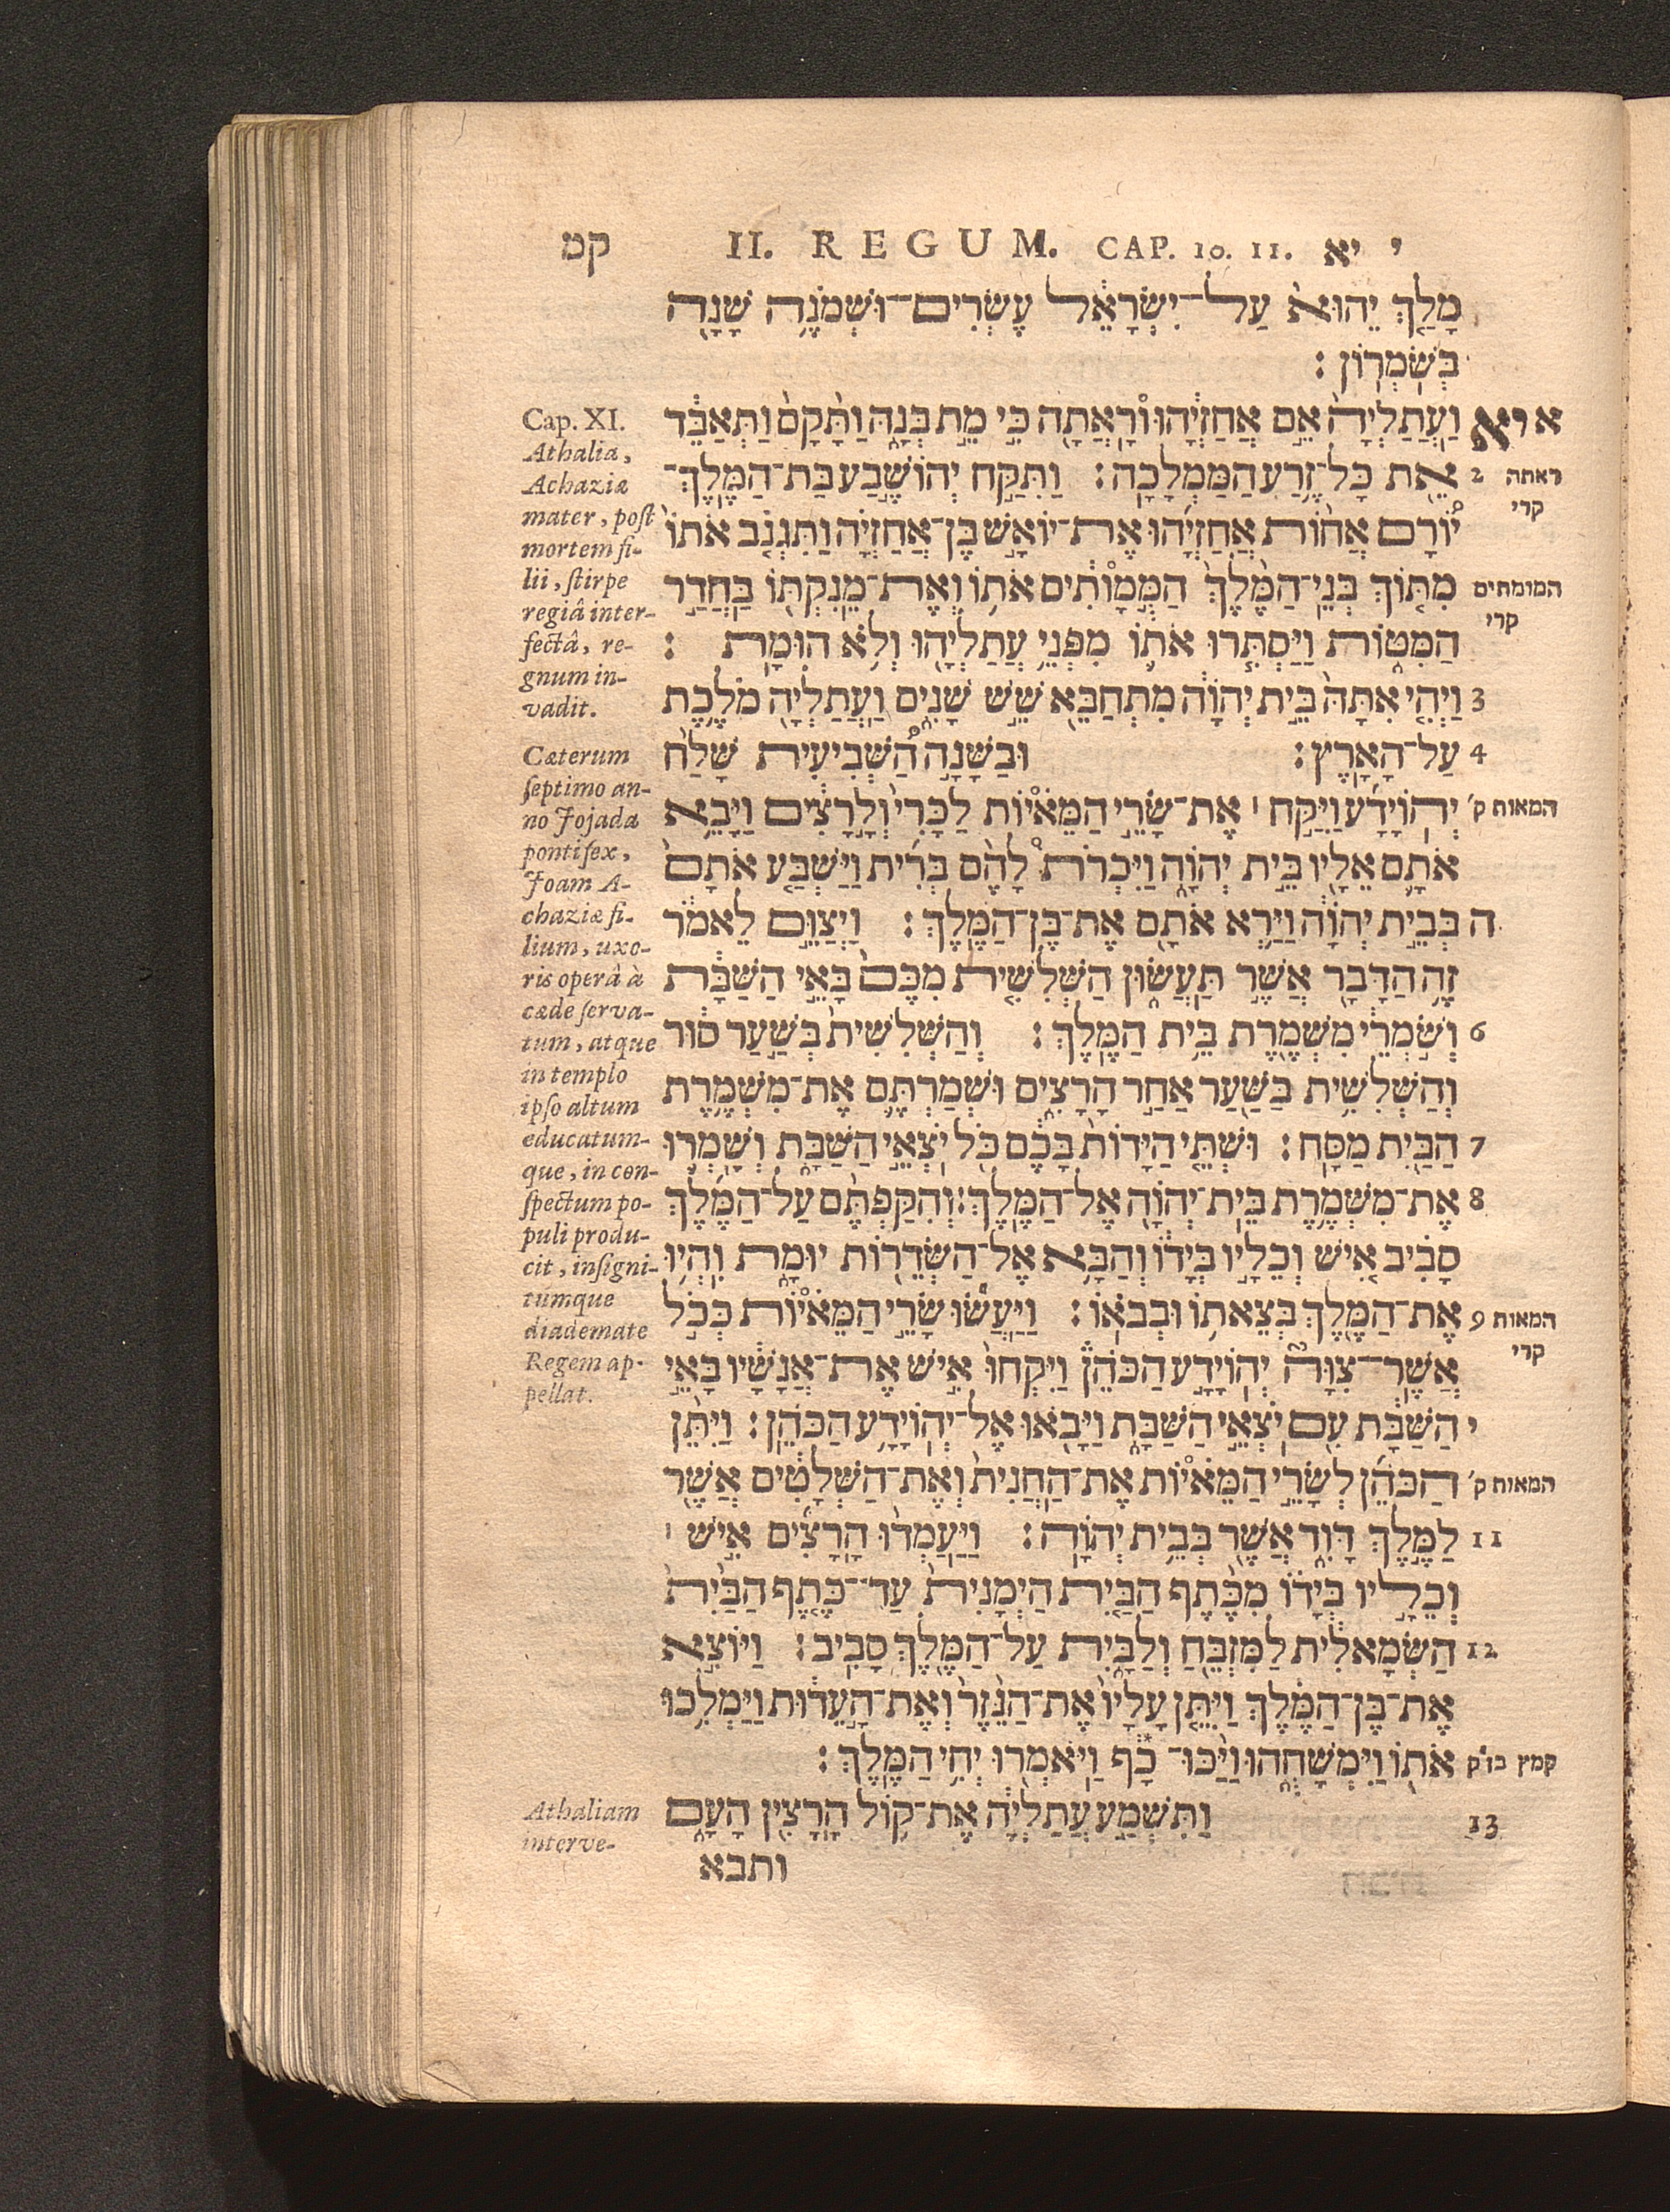 קמ II. REGUM. CAP. 10. 11. יא י
מָלַךְ יֵהוּא עַל־יִשְׂרָאֵל עֶשְׂרִים־וּשְׁמֹנֶה שָׁנָה
בְּשֹׁמְרוֹן׃
א יא וַעֲתַלְיָה אֵם אֲחַזְיָהוּ וְרָאֲתָה כִּי מֵת בְּנָהּ וַתָּקָם וַתְּאַבֵּד
2 אֵת כָּל־זֶרַע הַמַּמְלָכָה׃ וַתִּקַּח יְהוֹשֶׁבַע בַּת־הַמֶּלֶךְ־
יוֹרָם אֲחוֹת אֲחַזְיָהוּ אֶת־יוֹאָשׁ בֶּן־אֲחַזְיָה וַתִּגְנֹב אֹתוֹ
מִתּוֹךְ בְּנֵי־הַמֶּלֶךְ הַמֲּמוֹתְתִים אֹתוֹ וְאֶת־מֵנִקְתּוֹ בַּחֲדַר
הַמִּטּוֹת וַיַּסְתִּרוּ אֹתוֹ מִפְּנֵי עֲתַלְיָהוּ וְלֹא הוּמָת׃
3 וַיְהִי אִתָּהּ בֵּית יְהוָֹה מִתְחַבֵּא שֵׁשׁ שָׁנִים וַעֲתַלְיָה מֹלֶכֶת
4 עַל־הָאָרֶץ׃ וּבַשָּׁנָה הַשְּׁבִיעִית שָׁלַח
יְהוֹיָדָע וַיִּקַּח ׀ אֶת־שָׂרֵי הַמֵּאיוֹת לַכָּרִי וְלָרָצִים וַיָּבֵא
אֹתָם אֵלָיו בֵּית יְהוָֹה וַיִּכְרֹת לָהֶם בְּרִית וַיַּשְׁבַּע אֹתָם
ה בְּבֵית יְהוָֹה וַיַּרְא אֹתָם אֶת־בֶּן־הַמֶּלֶךְ׃ וַיְצַוֵּם לֵאמֹר
זֶה הַדָּבָר אֲשֶׁר תַּעֲשׂוּן הַשְּׁלִשִׁית מִכֶּם בָּאֵי הַשַּׁבָּת
6 וְשֹׁמְרֵי מִשְׁמֶרֶת בֵּית הַמֶּלֶךְ׃ וְהַשְּׁלִשִׁית בְּשַׁעַר סוּר
וְהַשְּׁלִשִׁית בַּשַּׁעַר אַחַר הָרָצִים וּשְׁמַרְתֶּם אֶת־מִשְׁמֶרֶת
7 הַבַּיִת מַסָּח׃ וּשְׁתֵּי הַיָּדוֹת בָּכֶם כֹּל יֹצְאֵי הַשַּׁבָּת וְשָׁמְרוּ
8 אֶת־מִשְׁמֶרֶת בֵּית־יְהוָֹה אֶל־הַמֶּלֶךְ׃ וְהִקַּפְתֶּם עַל־הַמֶּלֶךְ
סָבִיב אִישׁ וְכֵלָיו בְּיָדוֹ וְהַבָּא אֶל־הַשְּׂדֵרוֹת יוּמָת וִהְיוּ
9 אֶת־הַמֶּלֶךְ בְּצֵאתוֹ וּבְבֹאוֹ׃ וַיַּעֲשׂוּ שָׂרֵי הַמֵּאיוֹת כְּכֹל
אֲשֶׁר־צִוָּה יְהוֹיָדָע הַכֹּהֵן וַיִּקְחוּ אִישׁ אֶת־אֲנָשָׁיו בָּאֵי
י הַשַּׁבָּת עִם יֹצְאֵי הַשַּׁבָּת וַיָּבֹאוּ אֶל־יְהוֹיָדָע הַכֹּהֵן׃ וַיִּתֵּן
הַכֹּהֵן לְשָׂרֵי הַמֵּאיוֹת אֶת־הַחֲנִית וְאֶת־הַשְּׁלָטִים אֲשֶׁר
11 לַמֶּלֶךְ דָּוִד אֲשֶׁר בְּבֵית יְהוָֹה׃ וַיַּעַמְדוּ הָרָצִים אִישׁ ׀
וְכֵלָיו בְּיָדוֹ מִכֶּתֶף הַבַּיִת הַיְמָנִית עַד־כֶּתֶף הַבַּיִת
12 הַשְּׂמָאלִית לַמִּזְבֵּחַ וְלַבָּיִת עַל־הַמֶּלֶךְ סָבִיב׃ וַיּוֹצִא
אֶת־בֶּן־הַמֶּלֶךְ וַיִּתֵּן עָלָיו אֶת־הַנֵּזֶר וְאֶת־הָעֵדוּת וַיַּמְלִכוּ
אֹתוֹ וַיִּמְשָׁחֻהוּ וַיַּכּוּ־ כָף וַיֹּאמְרוּ יְחִי הַמֶּלֶךְ׃
13 וַתִּשְׁמַע עֲתַלְיָה אֶת־קוֹל הָרָצִין הָעָם
ותבא
ראתה
קרי
המומתים
קרי
המאות ק׳
המאות
קרי
המאות ק׳
קמץ בז״ק
Cap. XI.
Athalia,
Achaziæ
mater, post
mortem fi-
lii, stirpe
regiâ inter-
fectâ, re-
gnum in-
vadit.
Cæterum
septimo an-
no Jojada
pontifex,
Joam A-
chaziæ fi-
lium, uxo-
ris operâ à
cæde serva-
tum, atque
in templo
ipso altum
educatum-
que, in con-
spectum po-
puli produ-
cit, insigni-
tumque
diademate
Regem ap-
pellat.
Athaliam
interve-